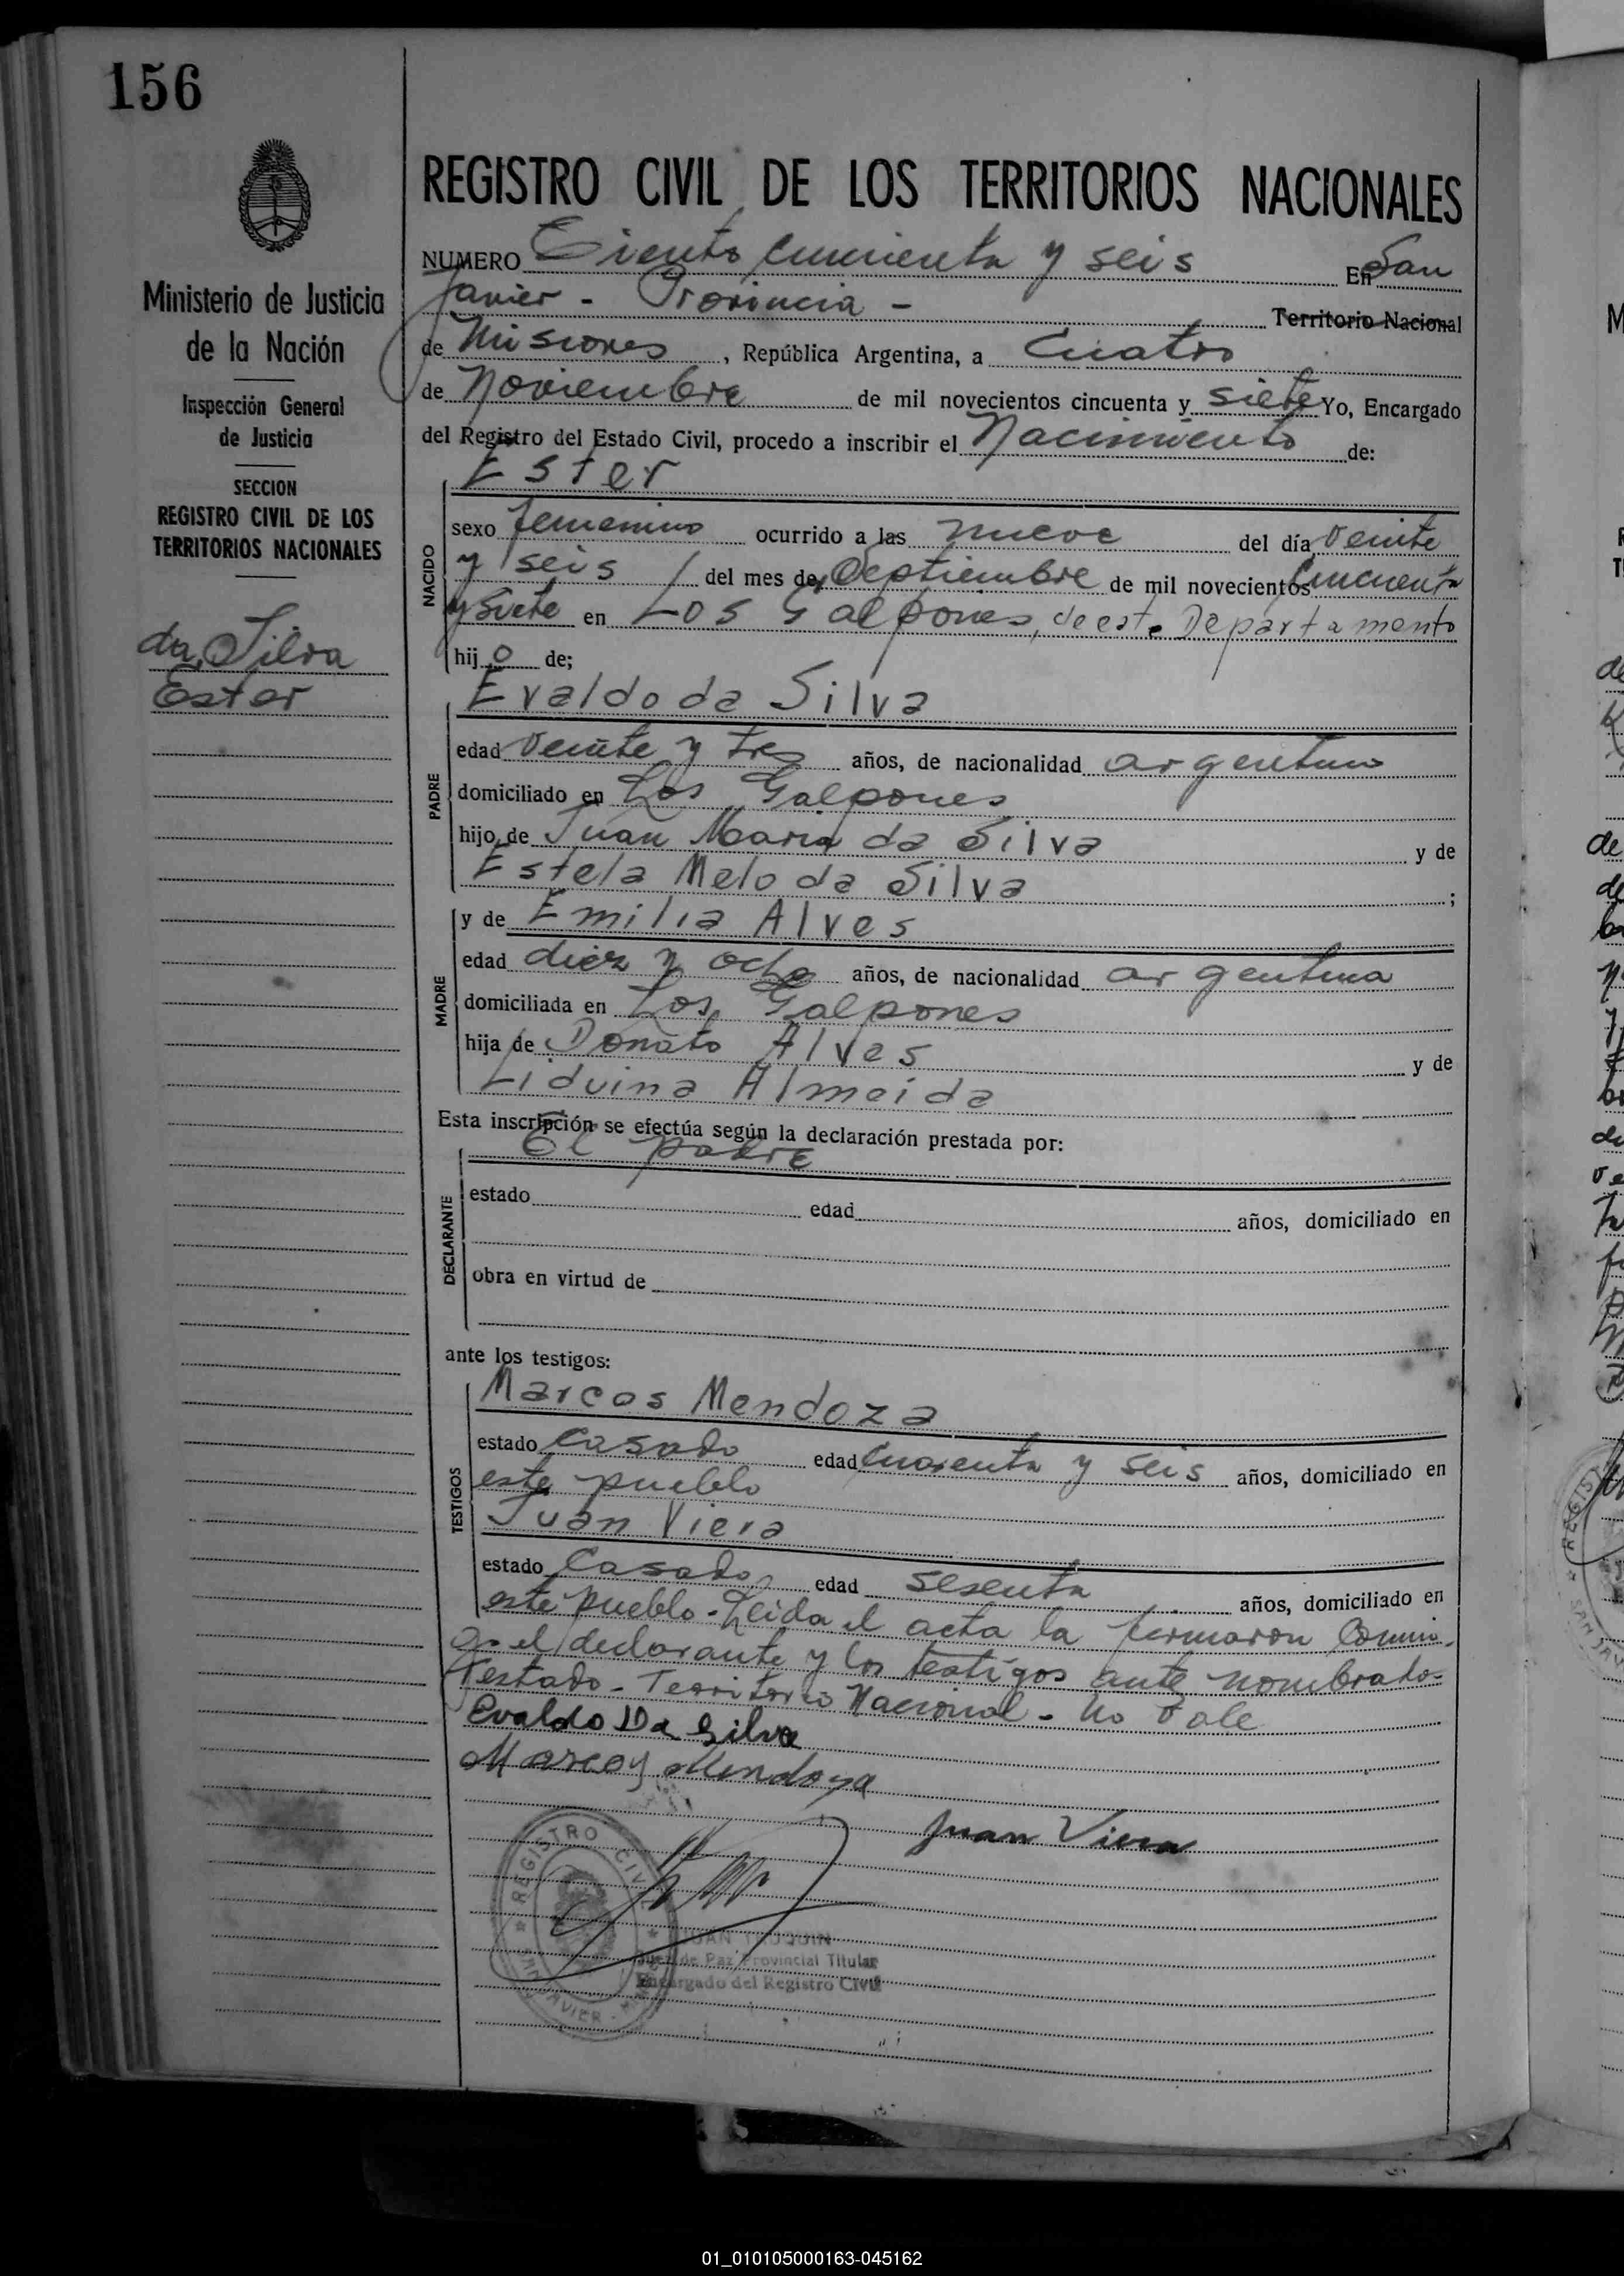 156
REGISTRO CIVIL DE LOS TERRITORIOS NACIONALES
Ministerio de Justicia
de la Nación
Inspección General
de Justicia
SECCION
REGISTRO CIVIL DE LOS
TERRITORIOS NACIONALES
da Silva
Ester
NUMERO Ciento cincuenta y seis En San
Javier - Provincia - Territorio Nacional
de Misiones, República Argentina, a Cuatro
de Noviembre de mil novecientos cincuenta y siete Yo, Encargado
del Registro del Estado Civil, procedo a inscribir el Nacimiento de:
Ester
NACIDO
sexo femenino ocurrido a las nueve del día veinte
y seis / del mes de Septiembre de mil novecientos cincuenta
y siete en Los Galpones, de este Departamento
hijo de;
Evaldo da Silva
PADRE
edad veinte y tres años, de nacionalidad argentino
domiciliado en Los Galpones
hijo de Juan Maria da Silva y de
Estela Melo da Silva ;
y de Emilia Alves
MADRE
edad diez y ocho años, de nacionalidad argentina
domiciliada en Los Galpones
hija de Donato Alves y de
Liduina Almeida
Esta inscripción se efectúa según la declaración prestada por:
El padre
DECLARANTE
estado edad años, domiciliado en
obra en virtud de
ante los testigos:
Marcos Mendoza
TESTIGOS
estado casado edad cuarenta y seis años, domiciliado en
este pueblo
Juan Viera
estado Casado edad sesenta años, domiciliado en
este pueblo - Leida el acta la firmaron conmi-
go el declarante y los testigos ante nombrados
Testado - Territorio Nacional - No vale
Evaldo Da Silva
Marcos Mendoza
Juan Viera
REGISTRO CIVIL
SAN JAVIER
JUAN
Juez de Paz Provincial Titular
Encargado del Registro Civil
01_010105000163-045162